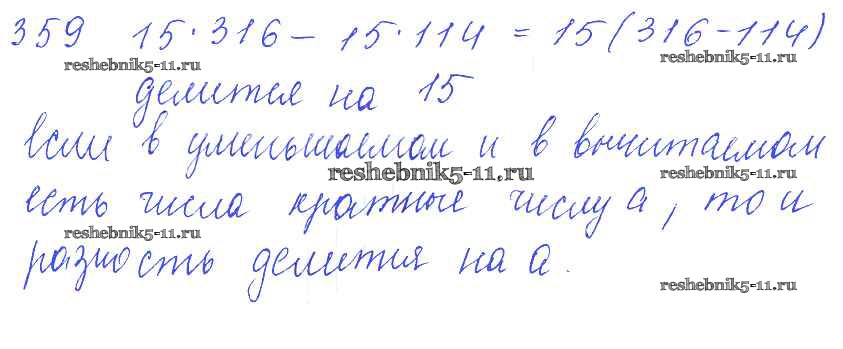 359 15·316 - 15·114 = 15(316-114)
reshebnik5-11.ru reshebnik5-11.ru
делится на 15
если в уменьшаемом и в вычитаемом
reshebnik5-11.ru reshebnik5-11.ru
есть числа кратные числу а, то и
reshebnik5-11.ru
разность делится на а.
reshebnik5-11.ru